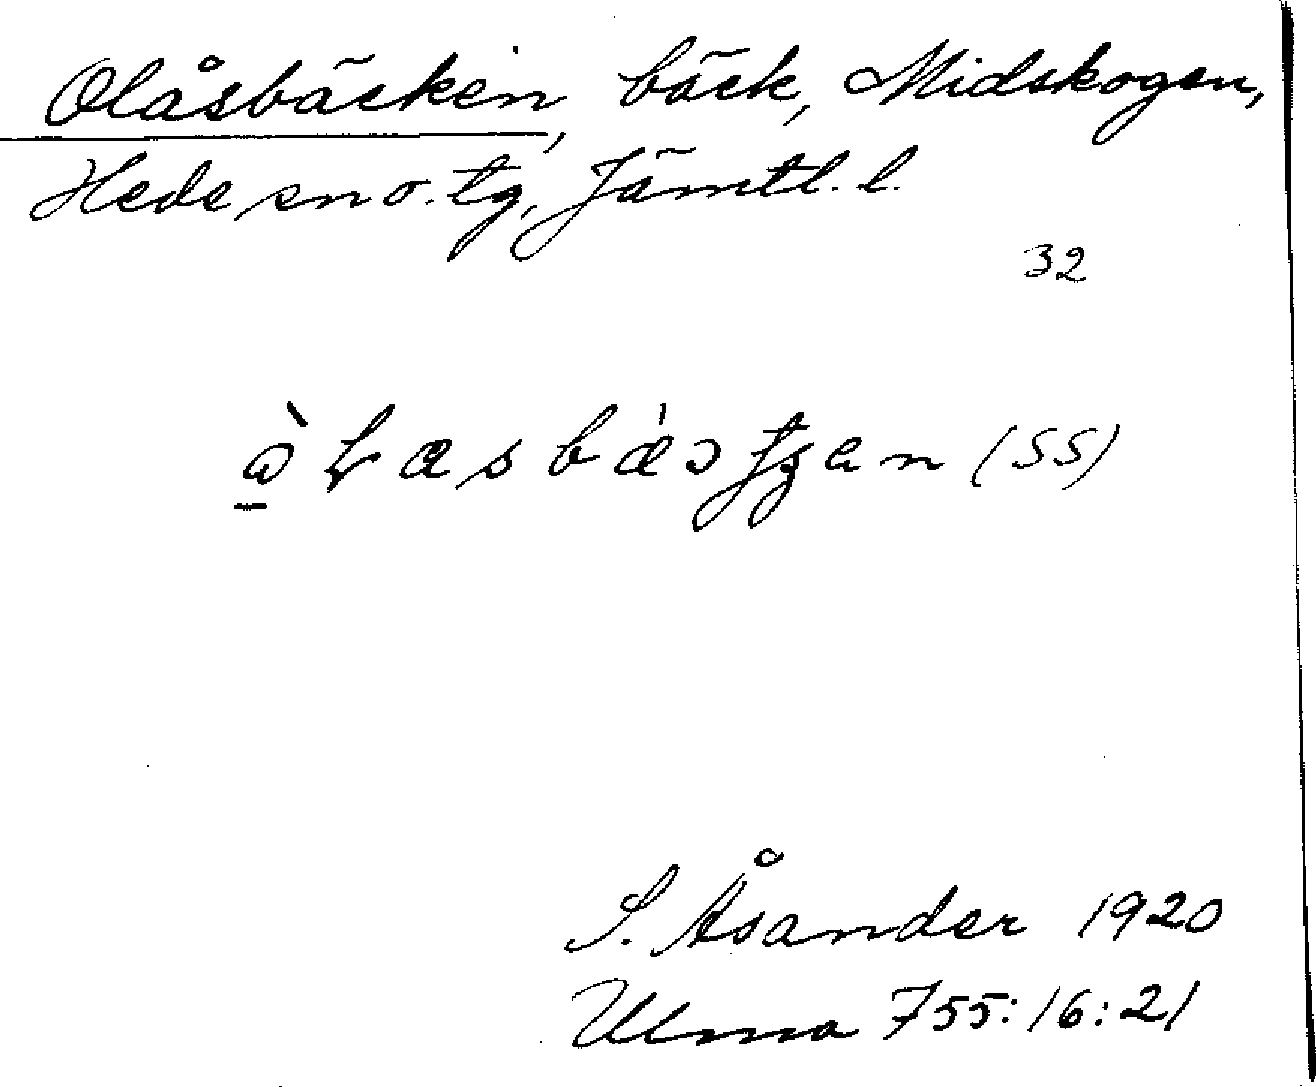 Olåsbäcken, bäck, Midskogen,
Hede sn o. tg, Jämtl. l.
32
(SS)
S. Åsander 1920
Ulma 755:16:21